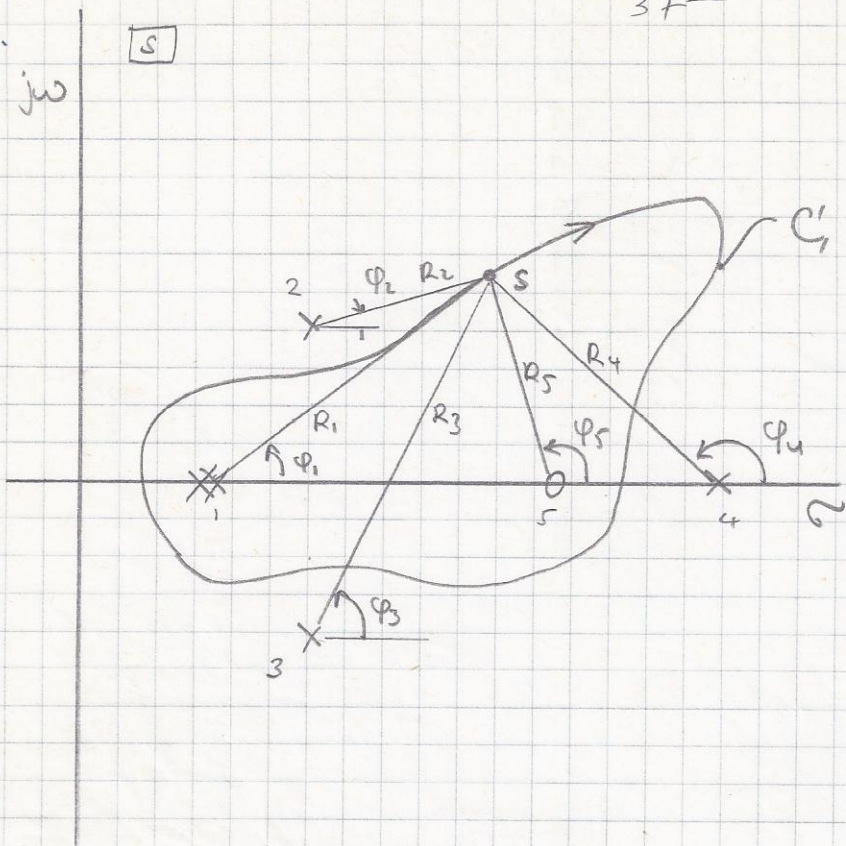 s
jω
C₁
2
φ₂
R₂
s
R₄
R₅
R₁
R₃
φ₁
φ₅
φ₄
1
5
4
σ
φ₃
3